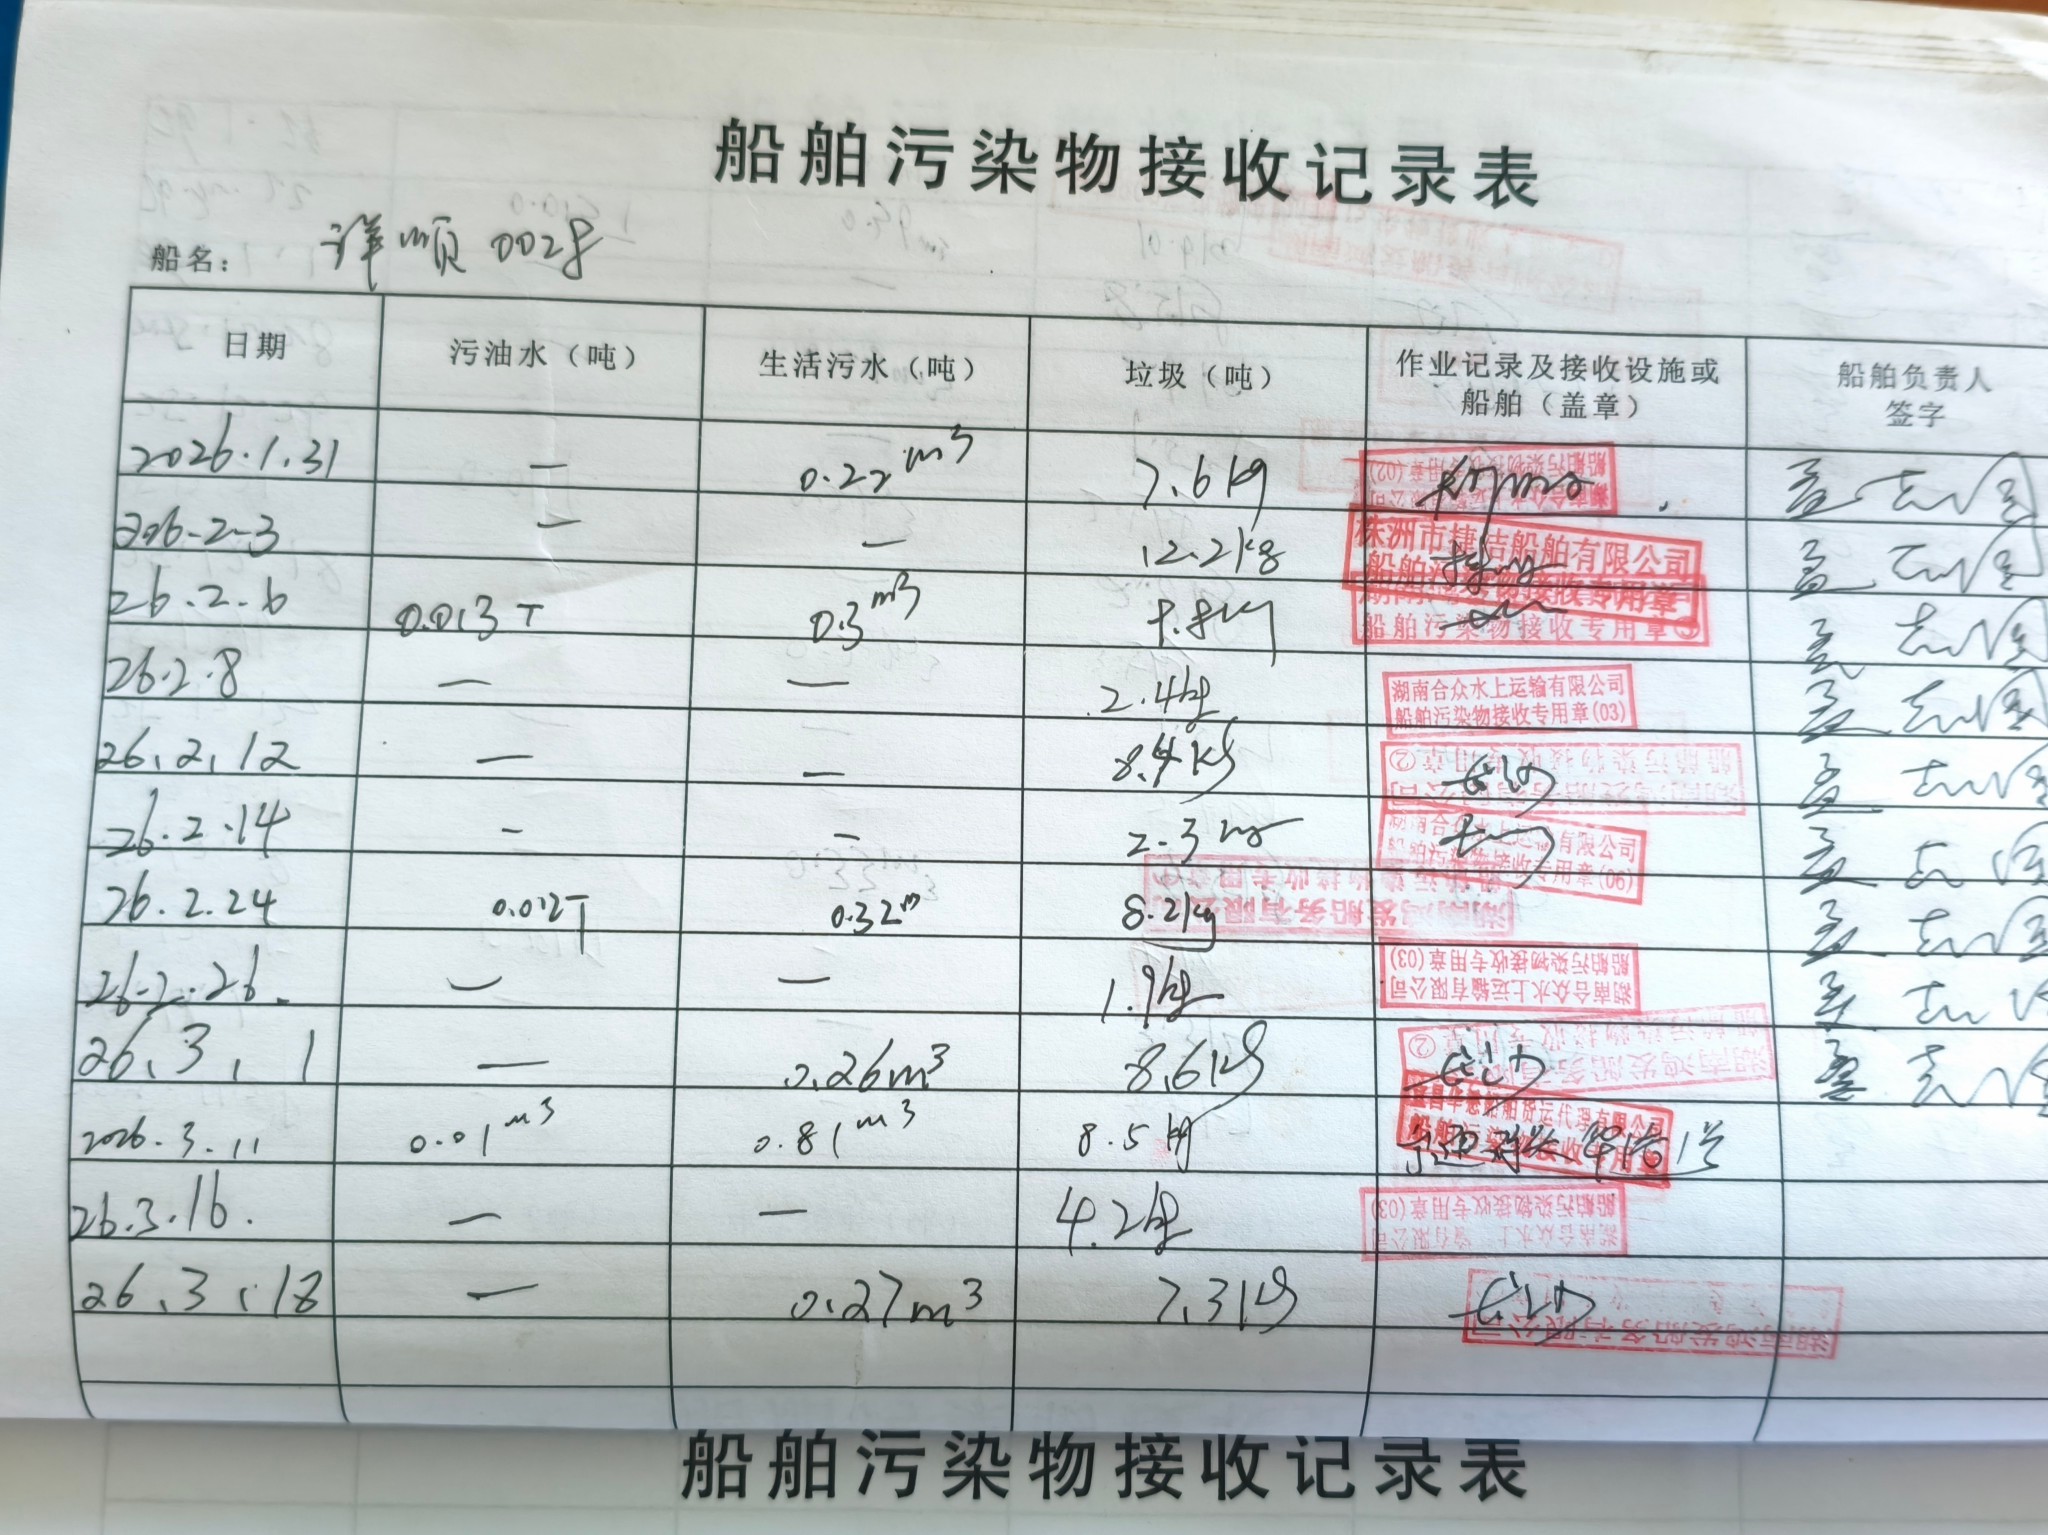 船舶污染物接收记录表
船名： 祥顺0028
日期 污油水（吨） 生活污水（吨） 垃圾（吨） 作业记录及接收设施或船舶（盖章） 船舶负责人签字
2026.1.31 — 0.22m³ 7.6kg 船舶污染物接收专用章(02)
2026-2-3 — — 12.2kg 株洲市捷洁船舶有限公司
26.2.6 0.013T 0.3m³ 8kg 船舶污染物接收专用章
26.2.8 — — 2.4kg 湖南合众水上运输有限公司 船舶污染物接收专用章(03)
26.2.12 — — 8.4kg 长沙 船舶污染物接收专用章②
26.2.14 — — 2.3kg 湖南合众水上运输有限公司 船舶污染物接收专用章(06)
26.2.24 0.012T 0.32m 8.2kg 湖南鸿发船务有限公司
26-2.26. — — 1.9kg 湖南合众水上运输有限公司 船舶污染物接收专用章(03)
26.3.1 — 0.26m³ 8.6kg 长沙 湖南鸿发船务有限公司 船舶污染物接收专用章②
2026.3.11 0.01m³ 0.81m³ 8.5kg
26.3.16. — — 4.2kg 湖南合众水上运输有限公司 船舶污染物接收专用章(03)
26.3.18 — 0.27m³ 7.3kg 长沙 湖南鸿发船务有限公司
船舶污染物接收记录表